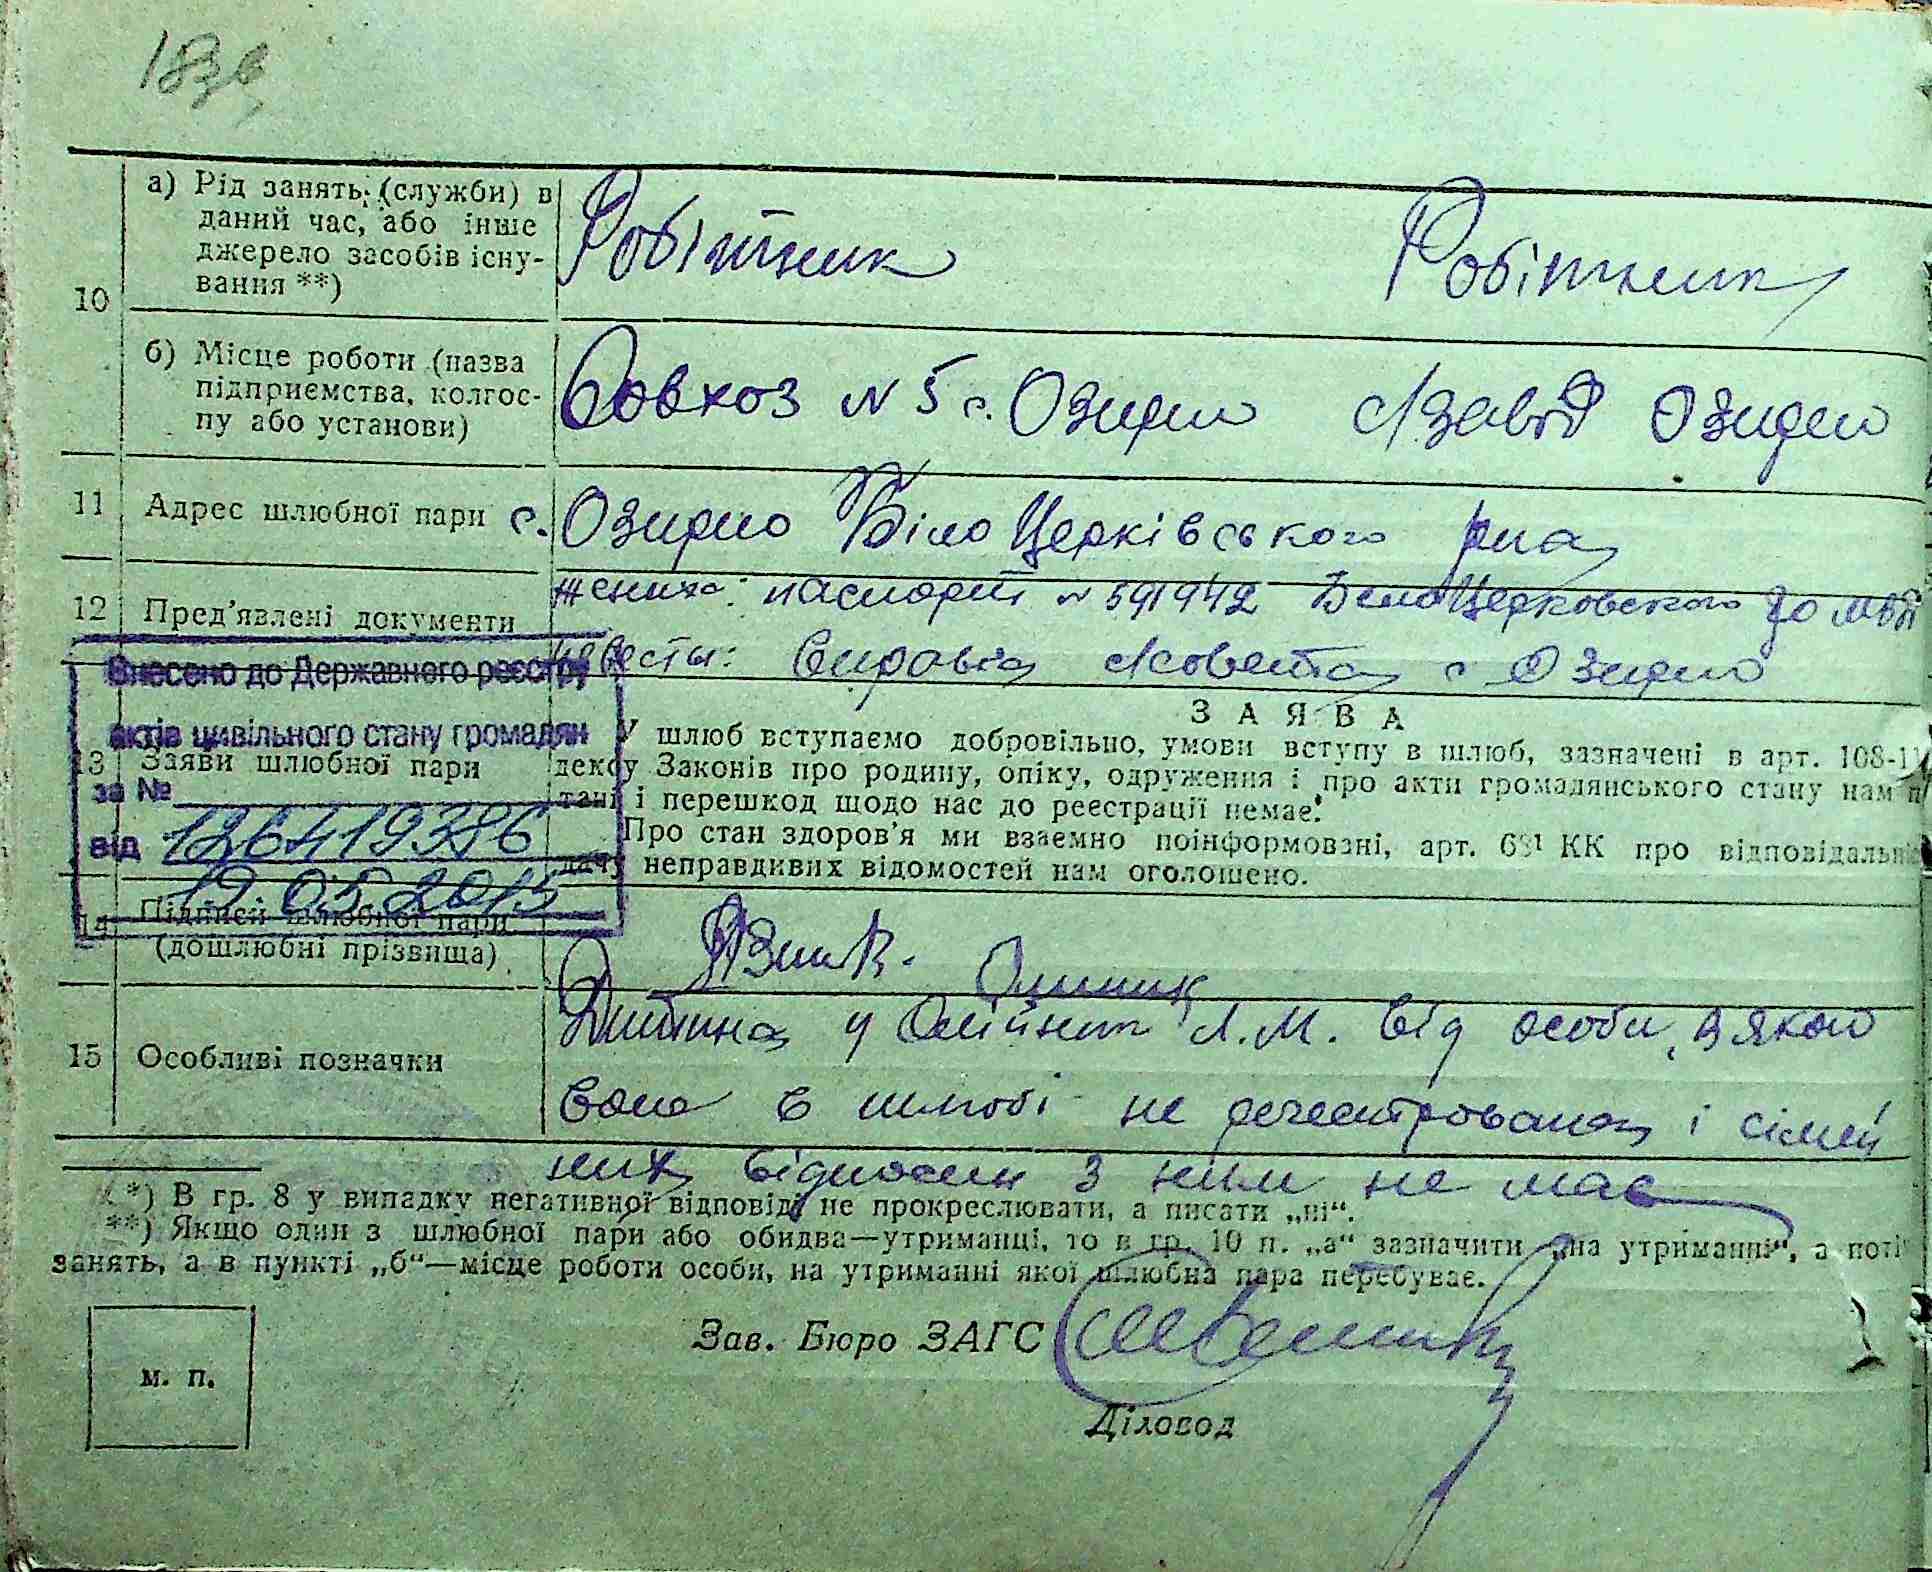 183 в
а) Рід занять (служби) в
даний час, або інше
джерело засобів існу-
вання **)
Робітник
Робітник
10
б) Місце роботи (назва
підприємства, колгос-
пу або установи)
Совхоз N 5 с. Озирно
завод Озирно
11 Адрес шлюбної пари с. Озирно Біло Церківського р-на
12 Пред’явлені документи
жениха: паспорт N 591942 БелоЦерковского
невесты: Справка с/совета с Озирно
Внесено до Державного реєстру
актів цивільного стану громадян
за №
від 126419386
19.05.2015
13 Заяви шлюбної пари
ЗАЯВА
У шлюб вступаємо добровільно, умови вступу в шлюб, зазначені в арт. 108-11
дексу Законів про родину, опіку, одруження і про акти громадянського стану нам п
тані і перешкод щодо нас до реєстрації немає.
Про стан здоров’я ми взаємно поінформовані, арт. 68¹ КК про відповідальні
дачу неправдивих відомостей нам оголошено.
14 Підписи шлюбної пари
(дошлюбні прізвища)
15 Особливі позначки
Дитина у Олійник Л.М. від особи, з якою
вона в шлюбі не регестрована і сімей
них відносин з ним не має
*) В гр. 8 у випадку негативної відповіді не прокреслювати, а писати „ні“.
**) Якщо один з шлюбної пари або обидва—утриманці, то в гр. 10 п. „а“ зазначити „на утриманні“, а поті
занять, а в пункті „б“—місце роботи особи, на утриманні якої шлюбна пара перебуває.
м. п.
Зав. Бюро ЗАГС
Діловод